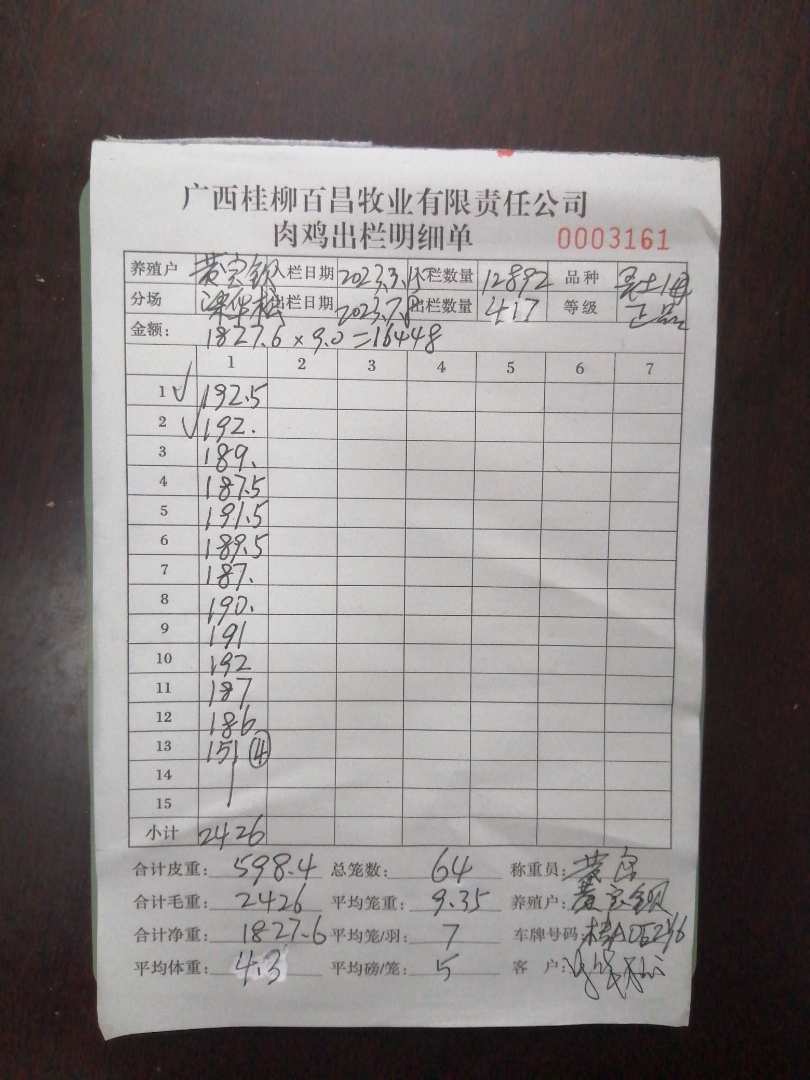 广西桂柳百昌牧业有限责任公司
肉鸡出栏明细单 0003161
养殖户 黄宝钡 入栏日期 2023.3. 入栏数量 12892 品种 土
分场 梁华松 出栏日期 2023.7. 出栏数量 417 等级 正品
金额: 1827.6×9.0=16448
1 2 3 4 5 6 7
1 ✓ 192.5
2 ✓ 192.
3 189.
4 187.5
5 191.5
6 189.5
7 187.
8 190.
9 191
10 192
11 187
12 186
13 151 ④
14
15
小计 2426
合计皮重: 598.4 总笼数: 64 称重员: 黄
合计毛重: 2426 平均笼重: 9.35 养殖户: 黄宝钡
合计净重: 1827.6 平均笼/羽: 7 车牌号码:
平均体重: 4.3 平均磅/笼: 5 客户: